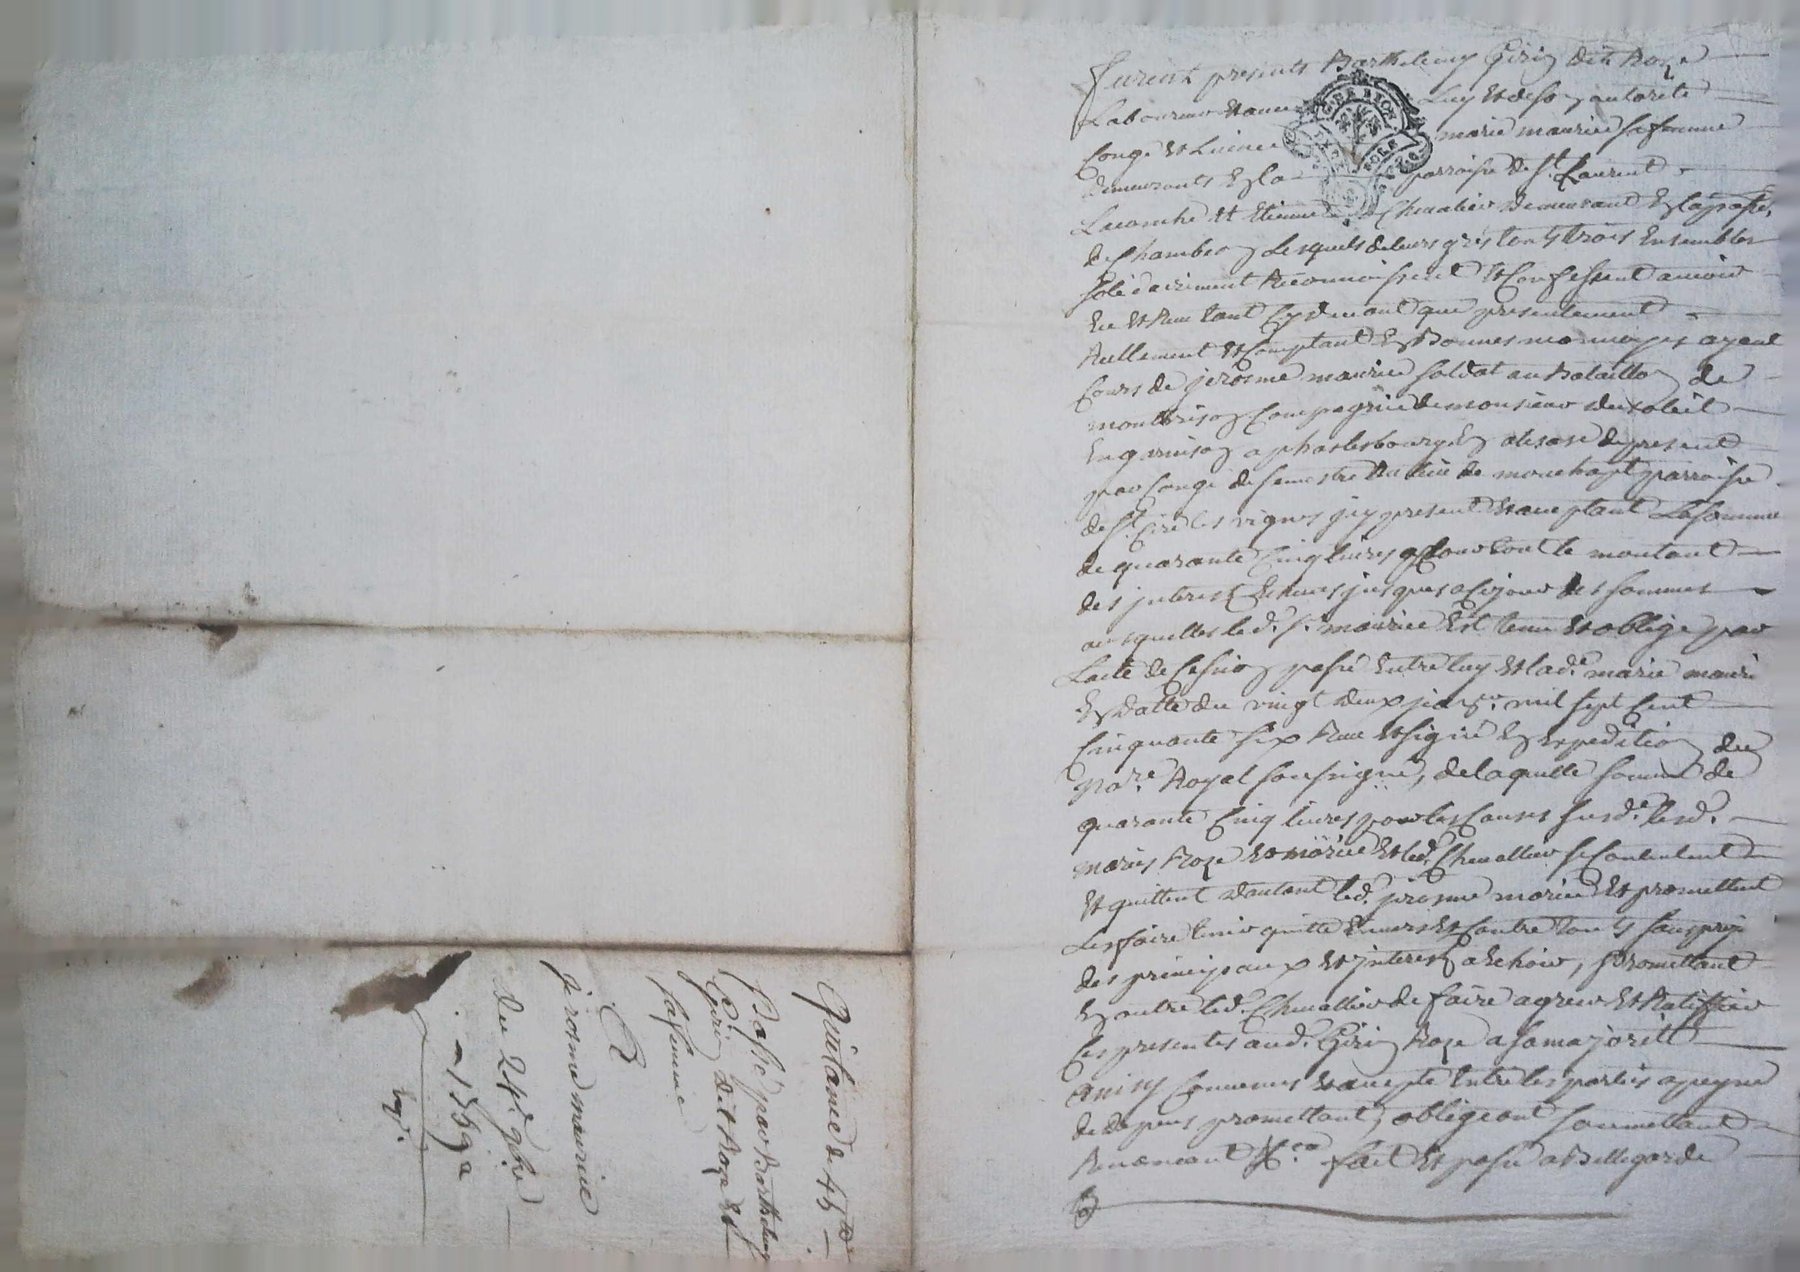 Furent presents Barthelemy Girin dit Roze
Laboureur et avec luy et de son autorité
Congé et Licence marie maurice sa femme
demeurants en la parroisse de St. Laurent
et Etienne Chevalier demeurant en la parisse
de Chambeon Lesquels de leurs grés touts trois Ensembles
solidairement Reconnoissent et Confessent avoir
Eu et Receu tant Cydevant que presentement
Reellement et Comptant En Bonnes monnoyes ayant
Cours de jerosme maurice soldat au Bataillon de
montbrison Compagnie de monsieur du soleil
En garnison a phaslesbourg En alsase de present
par Congé de semestre au lieu de parroisse
de St. Cire les vignes jcy present et aceptant La somme
de quarante Cinq livres pour tout le montant
des jnterest Echeus jusques a Cejour des sommes
ausquelles led. Sr. maurice Est tenu et obligé par
Lacte de Cession passé Entre luy et lad.e marie mauri
En datte du vingt deux janvr. mil sept Cent
Cinquante six Receu et signé En Expedition du
nore. Royal soussigné, de laquelle somme de
quarante Cinq livres pour les Causes susd.e lesd.
mariés Roze et morice et led. Chevallier se Contentent
et quittent d'autant led. jerosme morice et promettent
Les faire tenir quitte Envers et Contre touts sans prej.
des principaux et jnterest a Echoir, promettant
En outre led. Chevallier de faire agreer et Ratiffier
Ces presentes aud. Girin Roze a sa majorité
ainsy Convenus et accepté Entre les parties a peyne
de depens promettant, obligeant soumettant
Renonceant &ca fait et passé a Bellegarde
Quitance de 45 ld
Passé par Barthelemy
Girin dit Roze et
sa femme
A
jerosme maurice
Du 24e. 9bre
1759